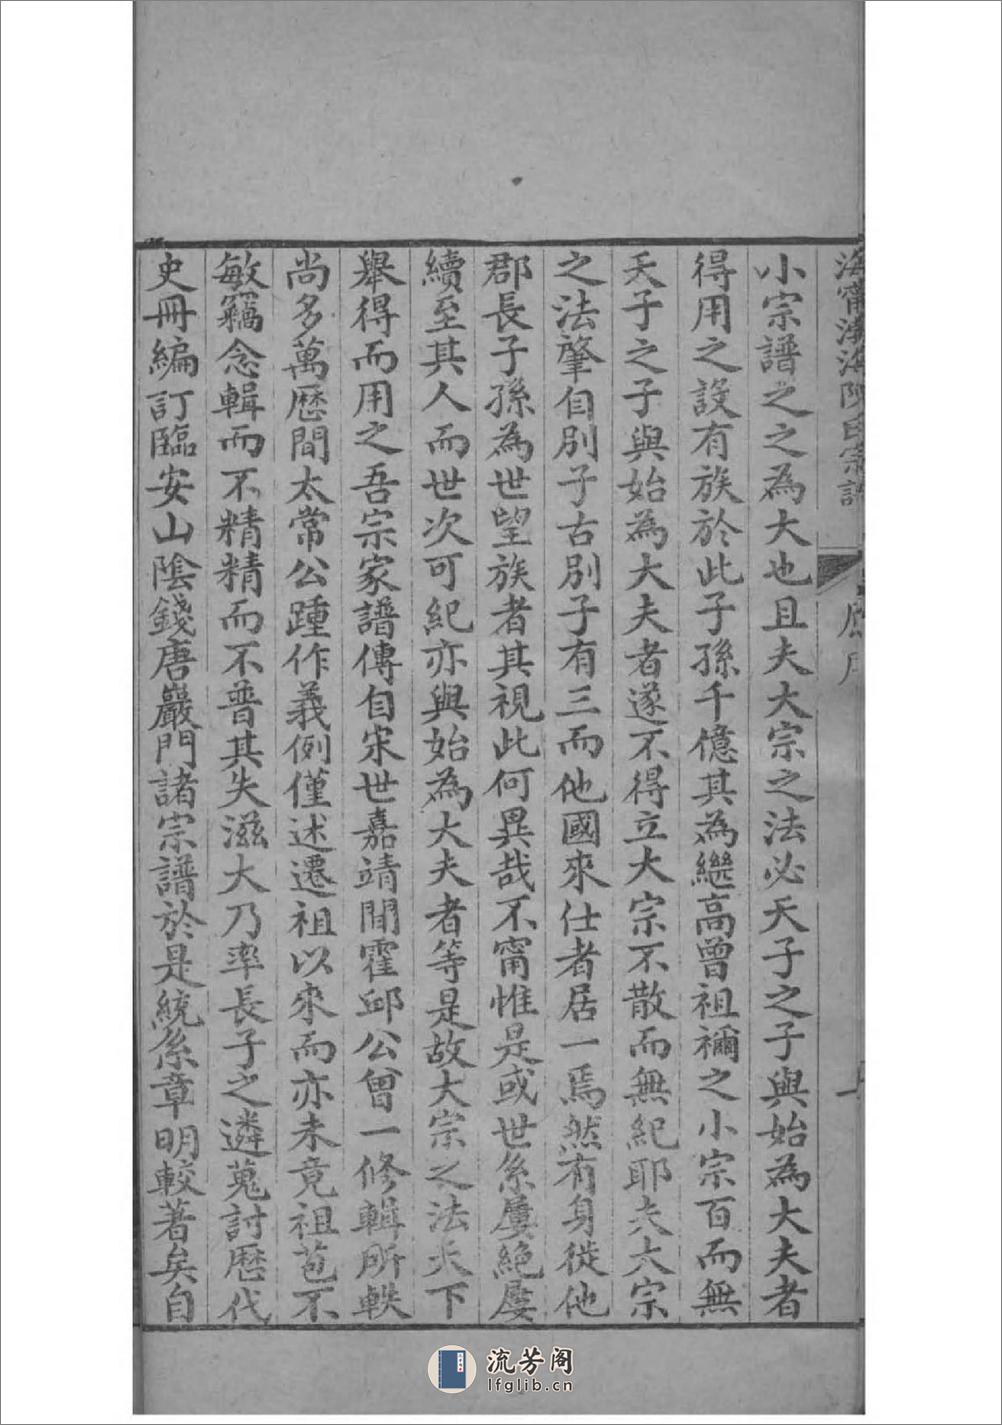 海寧渤海陳氏宗譜
小宗譜之之為大也且夫大宗之法必天子之子與始為大夫者
得用之設有族於此子孫千億其為繼高曾祖禰之小宗百而無
天子之子與始為大夫者遂不得立大宗不散而無紀耶夫大宗
之法肇自別子古別子有三而他國來仕者居一焉然有身從他
郡長子孫為世望族者其視此何異哉不甯惟是或世系屢絕屢
續至其人而世次可紀亦與始為大夫者等是故大宗之法天下
舉得而用之吾宗家譜傳自宋世嘉靖間霍邱公曾一修輯所軼
尚多萬歷間太常公踵作義例僅述遷祖以來而亦未竟祖苞不
敏竊念輯而不精精而不普其失滋大乃率長子之遴蒐討歷代
史冊編訂臨安山陰錢唐巖門諸宗譜於是統系章明較著矣自
流芳阁
lfglib.cn